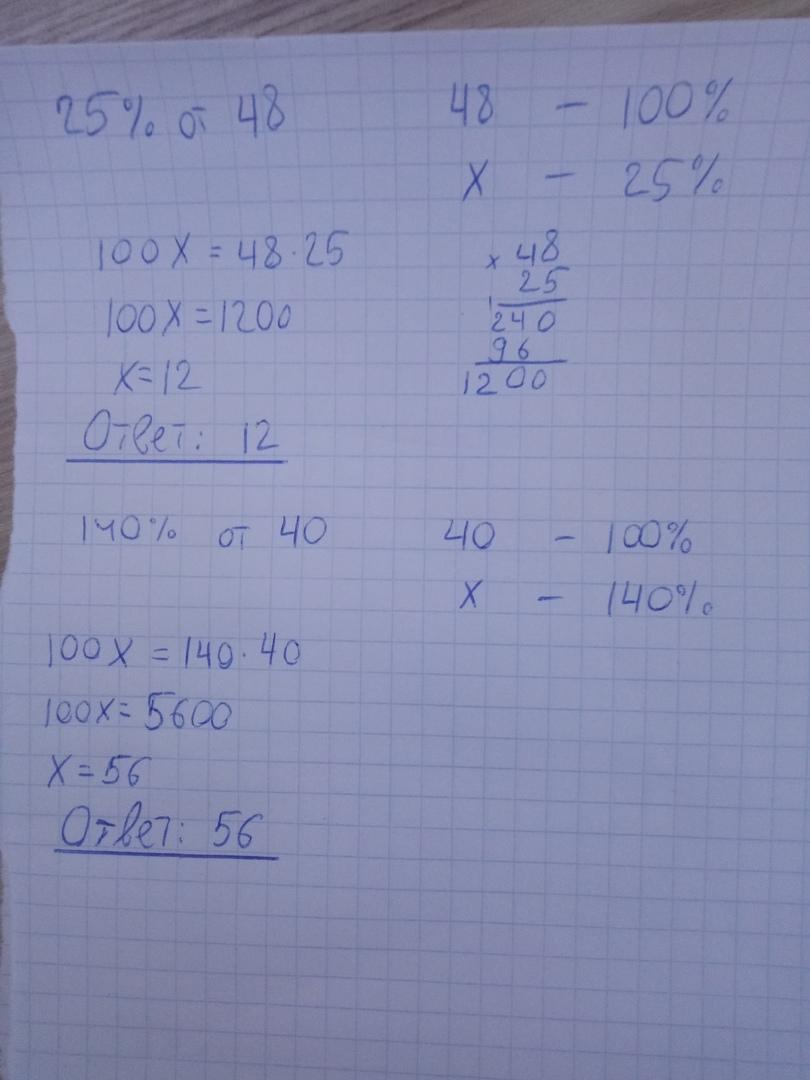 25% от 48
48 – 100%
x – 25%
100x = 48·25
100x = 1200
x = 12
Ответ: 12
x 48
25
1
240
96
1200
140% от 40
40 – 100%
x – 140%
100x = 140·40
100x = 5600
x = 56
Ответ: 56